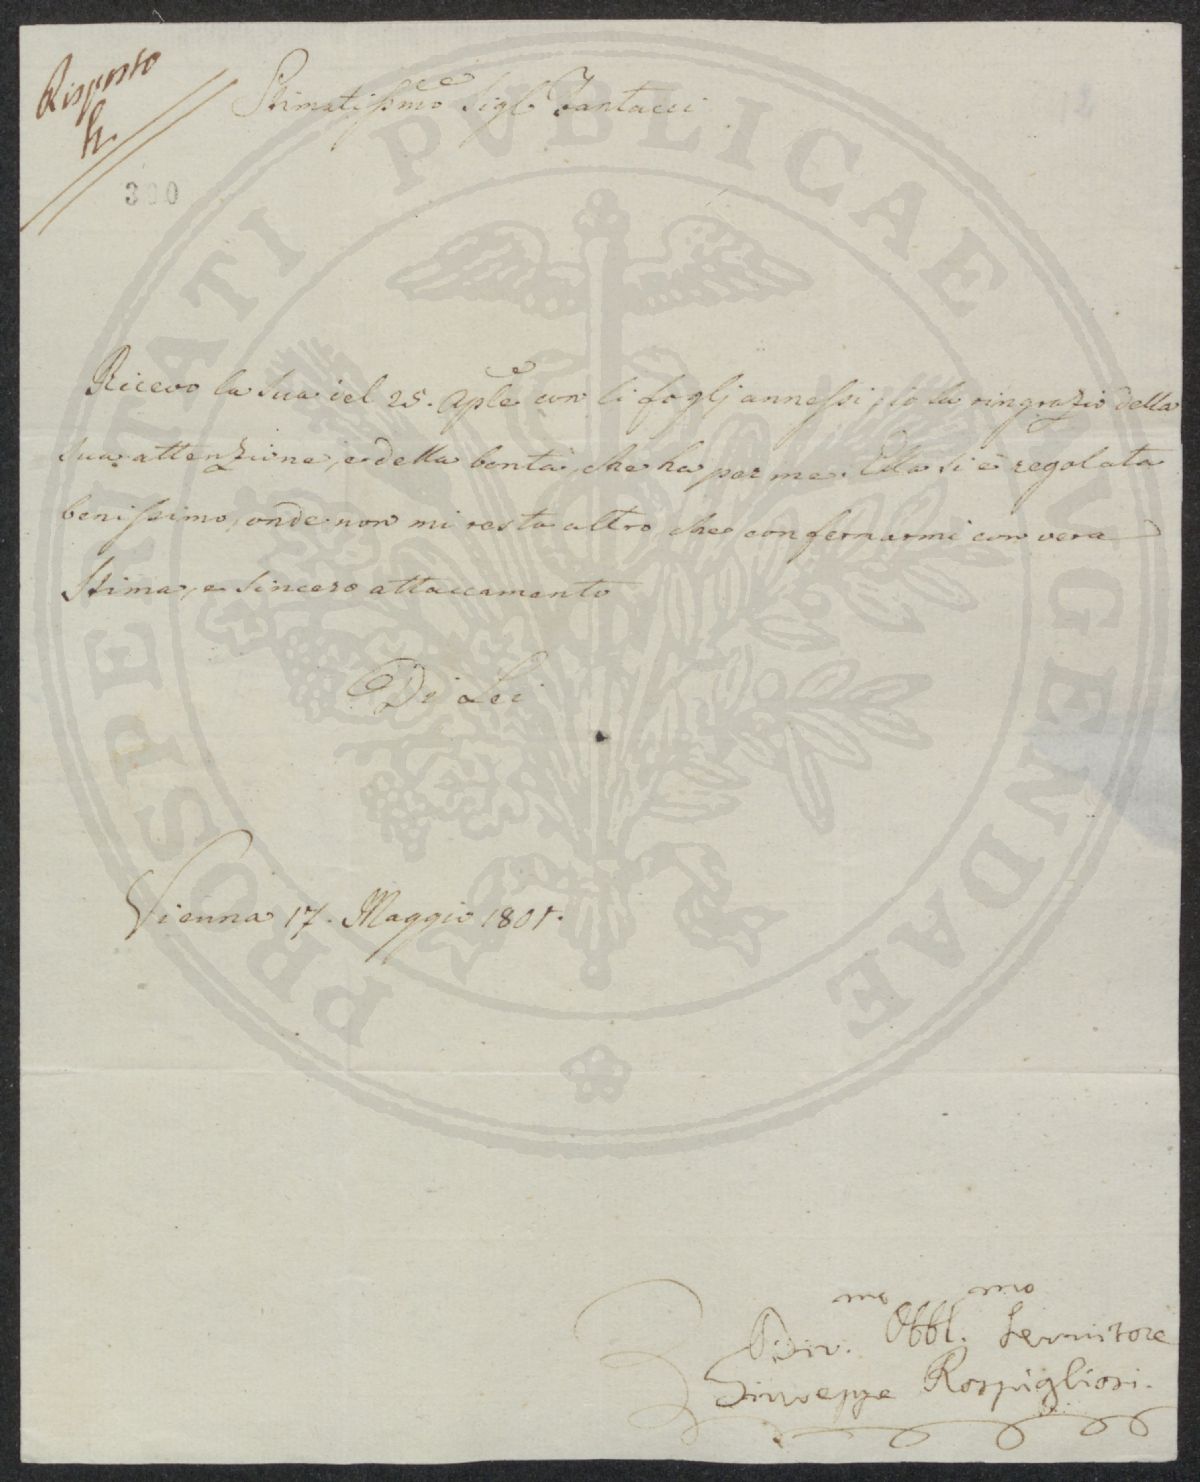 Risposto
Stimatissmo Sigre Fantacci
300
Ricevo la sua del 25. Aple con li foglj annessi, io la ringrazio della
sua attenzione, e della bontà, che ha per me. Ella si è regolata
benissimo, onde non mi resta altro che confermarmi con vera
Stima, e sincero attaccamento
Di Lei
Vienna 17. Maggio 1801.
Div.mo Obbl.mo Servitore
Giuseppe Rospigliosi.
PROSPERITATI PVBLICAE AVGENDAE